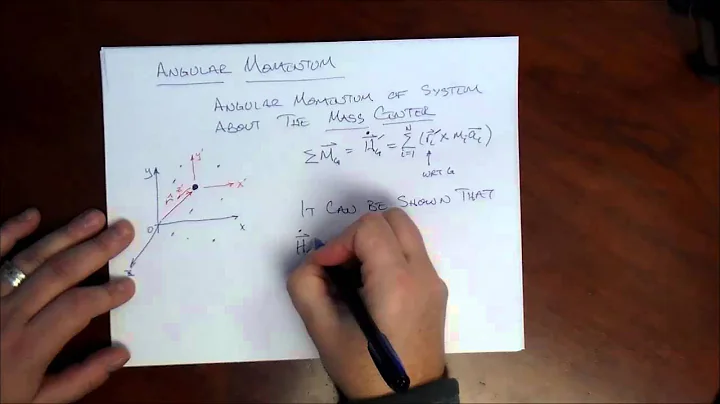 ANGULAR MOMENTUM
ANGULAR MOMENTUM OF SYSTEM
ABOUT THE MASS CENTER
ΣM⃗_G = H⃗̇'_G = Σ_{i=1}^{N} (r⃗_i' × m_i a⃗_i)
WRT G
IT CAN BE SHOWN THAT
H⃗̇
y
y'
x'
z'
O
x
z